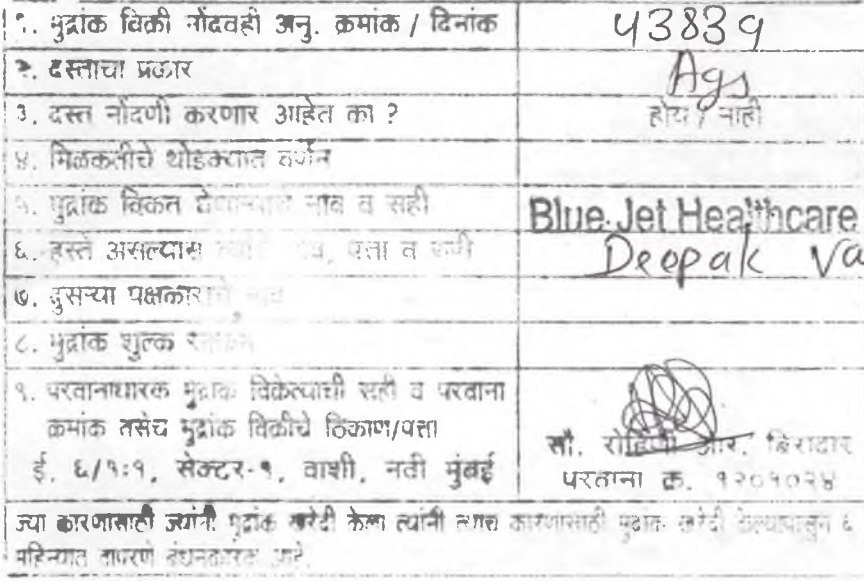 १. मुद्रांक विक्री नोंदवही अनु. क्रमांक / दिनांक 43839
२. दस्ताचा प्रकार Ags
३. दस्त नोंदणी करणार आहेत का ? होय / नाही
४. मिळकतीचे थोडक्यात वर्णन
५. मुद्रांक विकत घेणाऱ्याचे नाव व सही Blue Jet Healthcare
६. हस्ते असल्यास त्यांचे नाव, पत्ता व सही Deepak Va
७. दुसऱ्या पक्षकाराचे नाव
८. मुद्रांक शुल्क रक्कम
९. परवानाधारक मुद्रांक विक्रेत्याची सही व परवाना
क्रमांक तसेच मुद्रांक विक्रीचे ठिकाण/पत्ता
ई. ६/१:१, सेक्टर-१, वाशी, नवी मुंबई
सौ. रोहिणी आर. बिरादार
परवाना क्र. १२०१०२४
ज्या कारणासाठी ज्यांनी मुद्रांक खरेदी केला त्यांनी त्याच कारणासाठी मुद्रांक खरेदी केल्यापासुन ६
महिन्यात वापरणे बंधनकारक आहे.